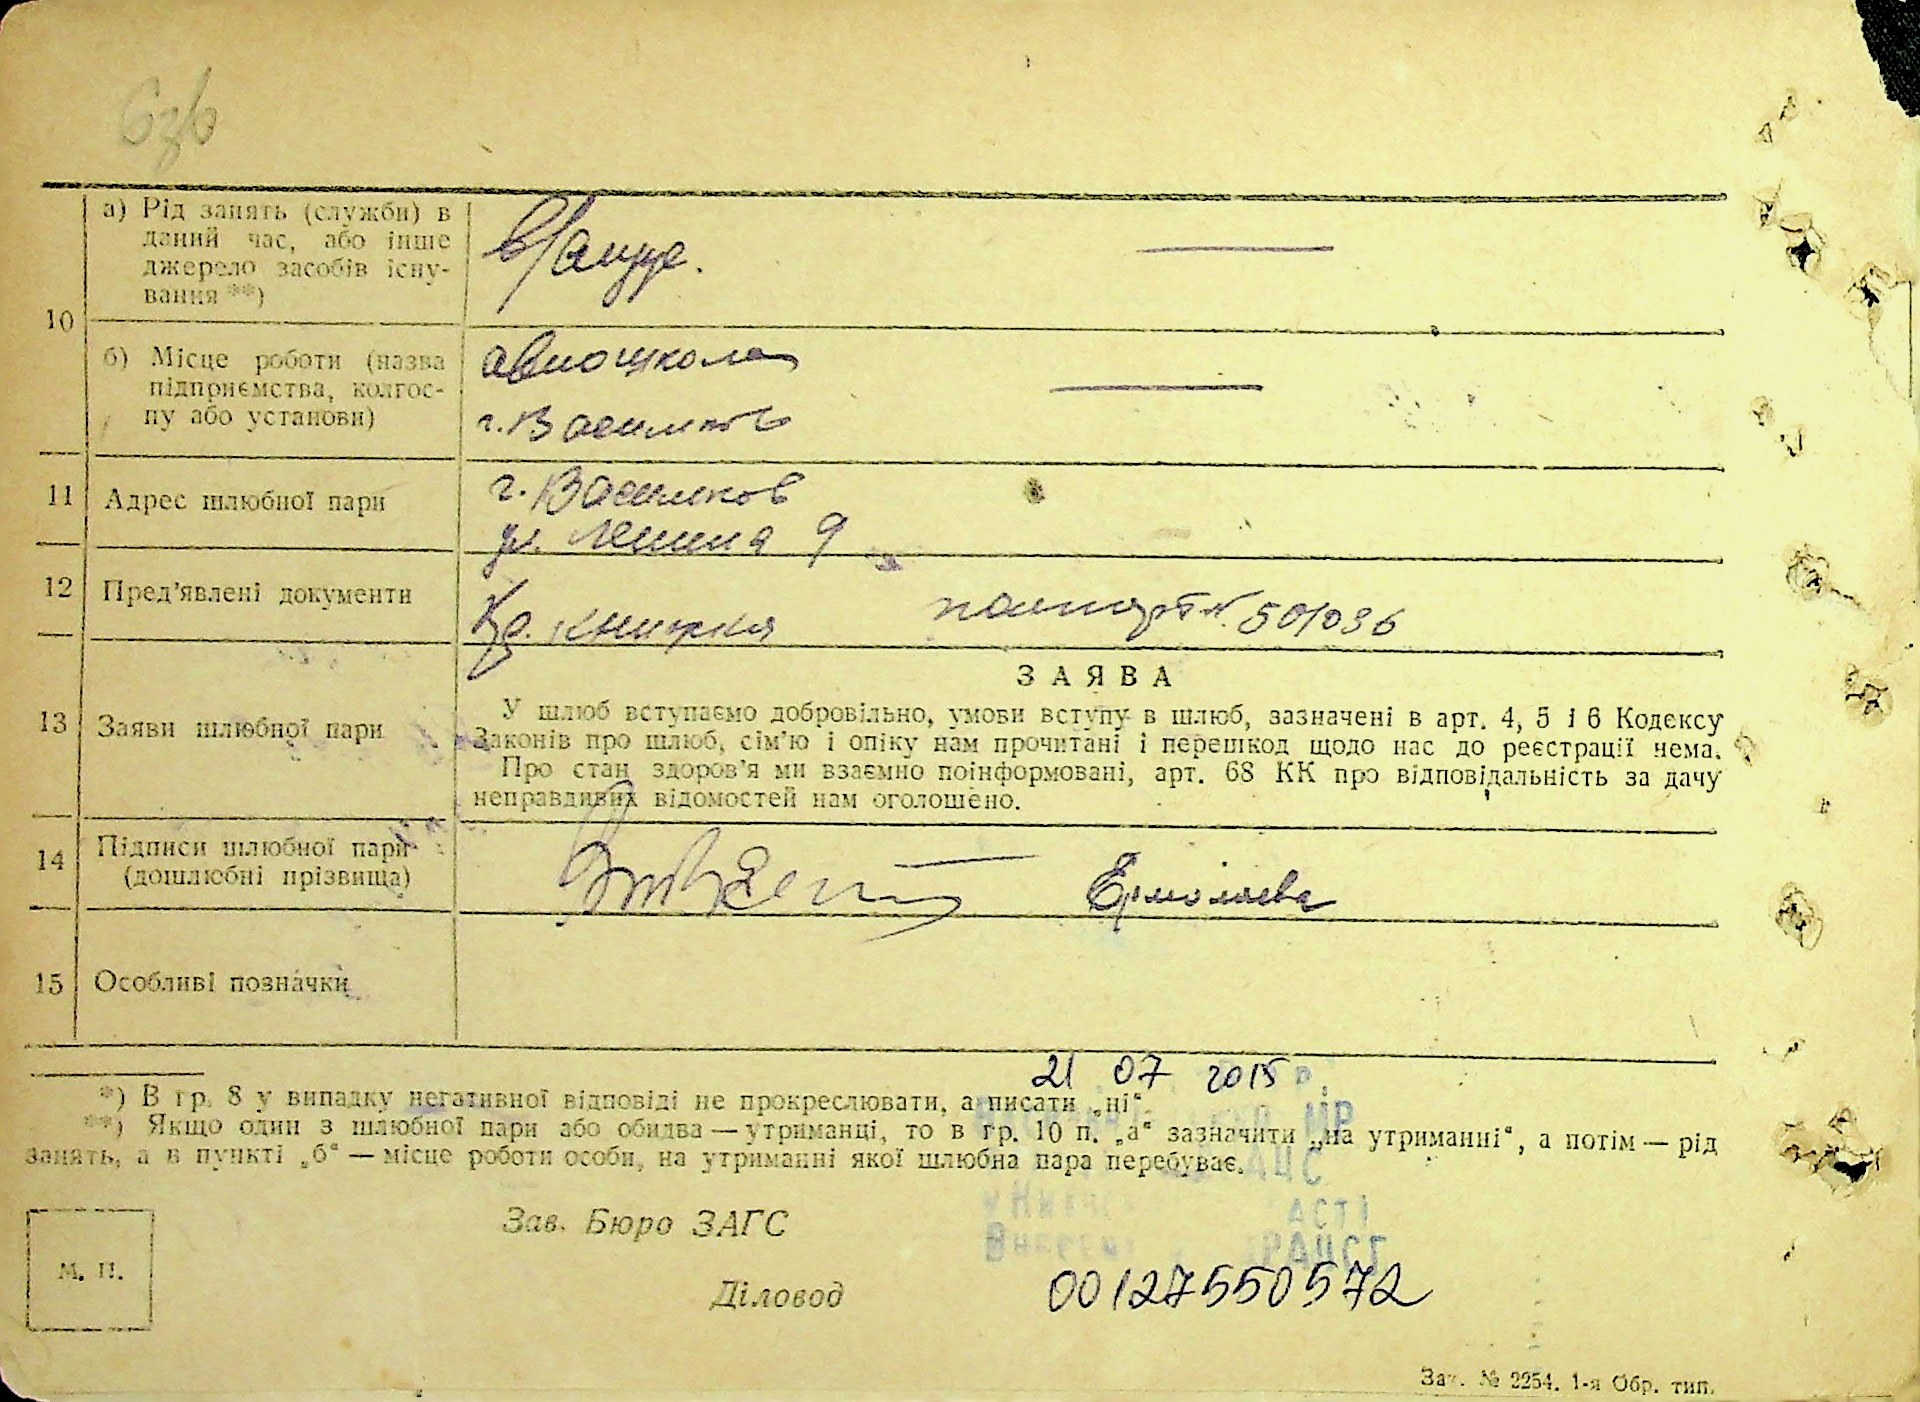 636
а) Рід занять (служби) в
даний час, або інше
джерело засобів існу-
вання **)
10
б) Місце роботи (назва
підприємства, колгос-
пу або установи)
авиошкола
г. Васильков
11
Адрес шлюбної пари
г. Васильков
ул. Ленина 9
12
Пред'явлені документи
Кр. книжка
паспорт №. 501036
ЗАЯВА
13
Заяви шлюбної пари
У шлюб вступаємо добровільно, умови вступу в шлюб, зазначені в арт. 4, 5 і 6 Кодексу
Законів про шлюб, сім'ю і опіку нам прочитані і перешкод щодо нас до реєстрації нема.
Про стан здоров'я ми взаємно поінформовані, арт. 68 КК про відповідальність за дачу
неправдивих відомостей нам оголошено.
14
Підписи шлюбної пари
(дошлюбні прізвища)
Ермолаева
15
Особливі позначки
21 07 2015 р.
*) В гр. 8 у випадку негативної відповіді не прокреслювати, а писати „ні“
**) Якщо один з шлюбної пари або обидва — утриманці, то в гр. 10 п. „а“ зазначити „на утриманні“, а потім — рід
занять, а в пункті „б“ — місце роботи особи, на утриманні якої шлюбна пара перебуває.
АСТІ
ДРАЦСГ
Зав. Бюро ЗАГС
М. П.
Діловод
00127550572
Зат. № 2254. 1-я Обр. тип.